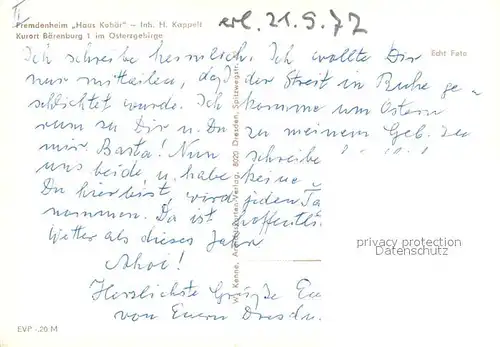 II
Fremdenheim „Haus Kobär" — Inh. H. Kappelt
Kurort Bärenburg 1 im Osterzgebirge
erl. 21.9.72
Echt Foto
Ich schreibe heimlich. Ich wollte Dir
nur mitteilen, daß der Streit in Ruhe ge-
schlichtet wurde. Ich komme um Ostern
rum zu Dir u. Du zu meinem Geb. zu
mir. Basta! Nun schreibe
uns beide u. habe keine
Du hier bist, wird jeden Ta
nommen. Da ist hoffentl.
Wetter als dieses Jahr
Ahoi!
Herzlichste Grüße Eu
von Euern Dresdn.
Kenne, Ansichtskarten-Verlag, 8020 Dresden, Spitzwegstr.
privacy protection
Datenschutz
EVP -,20 M